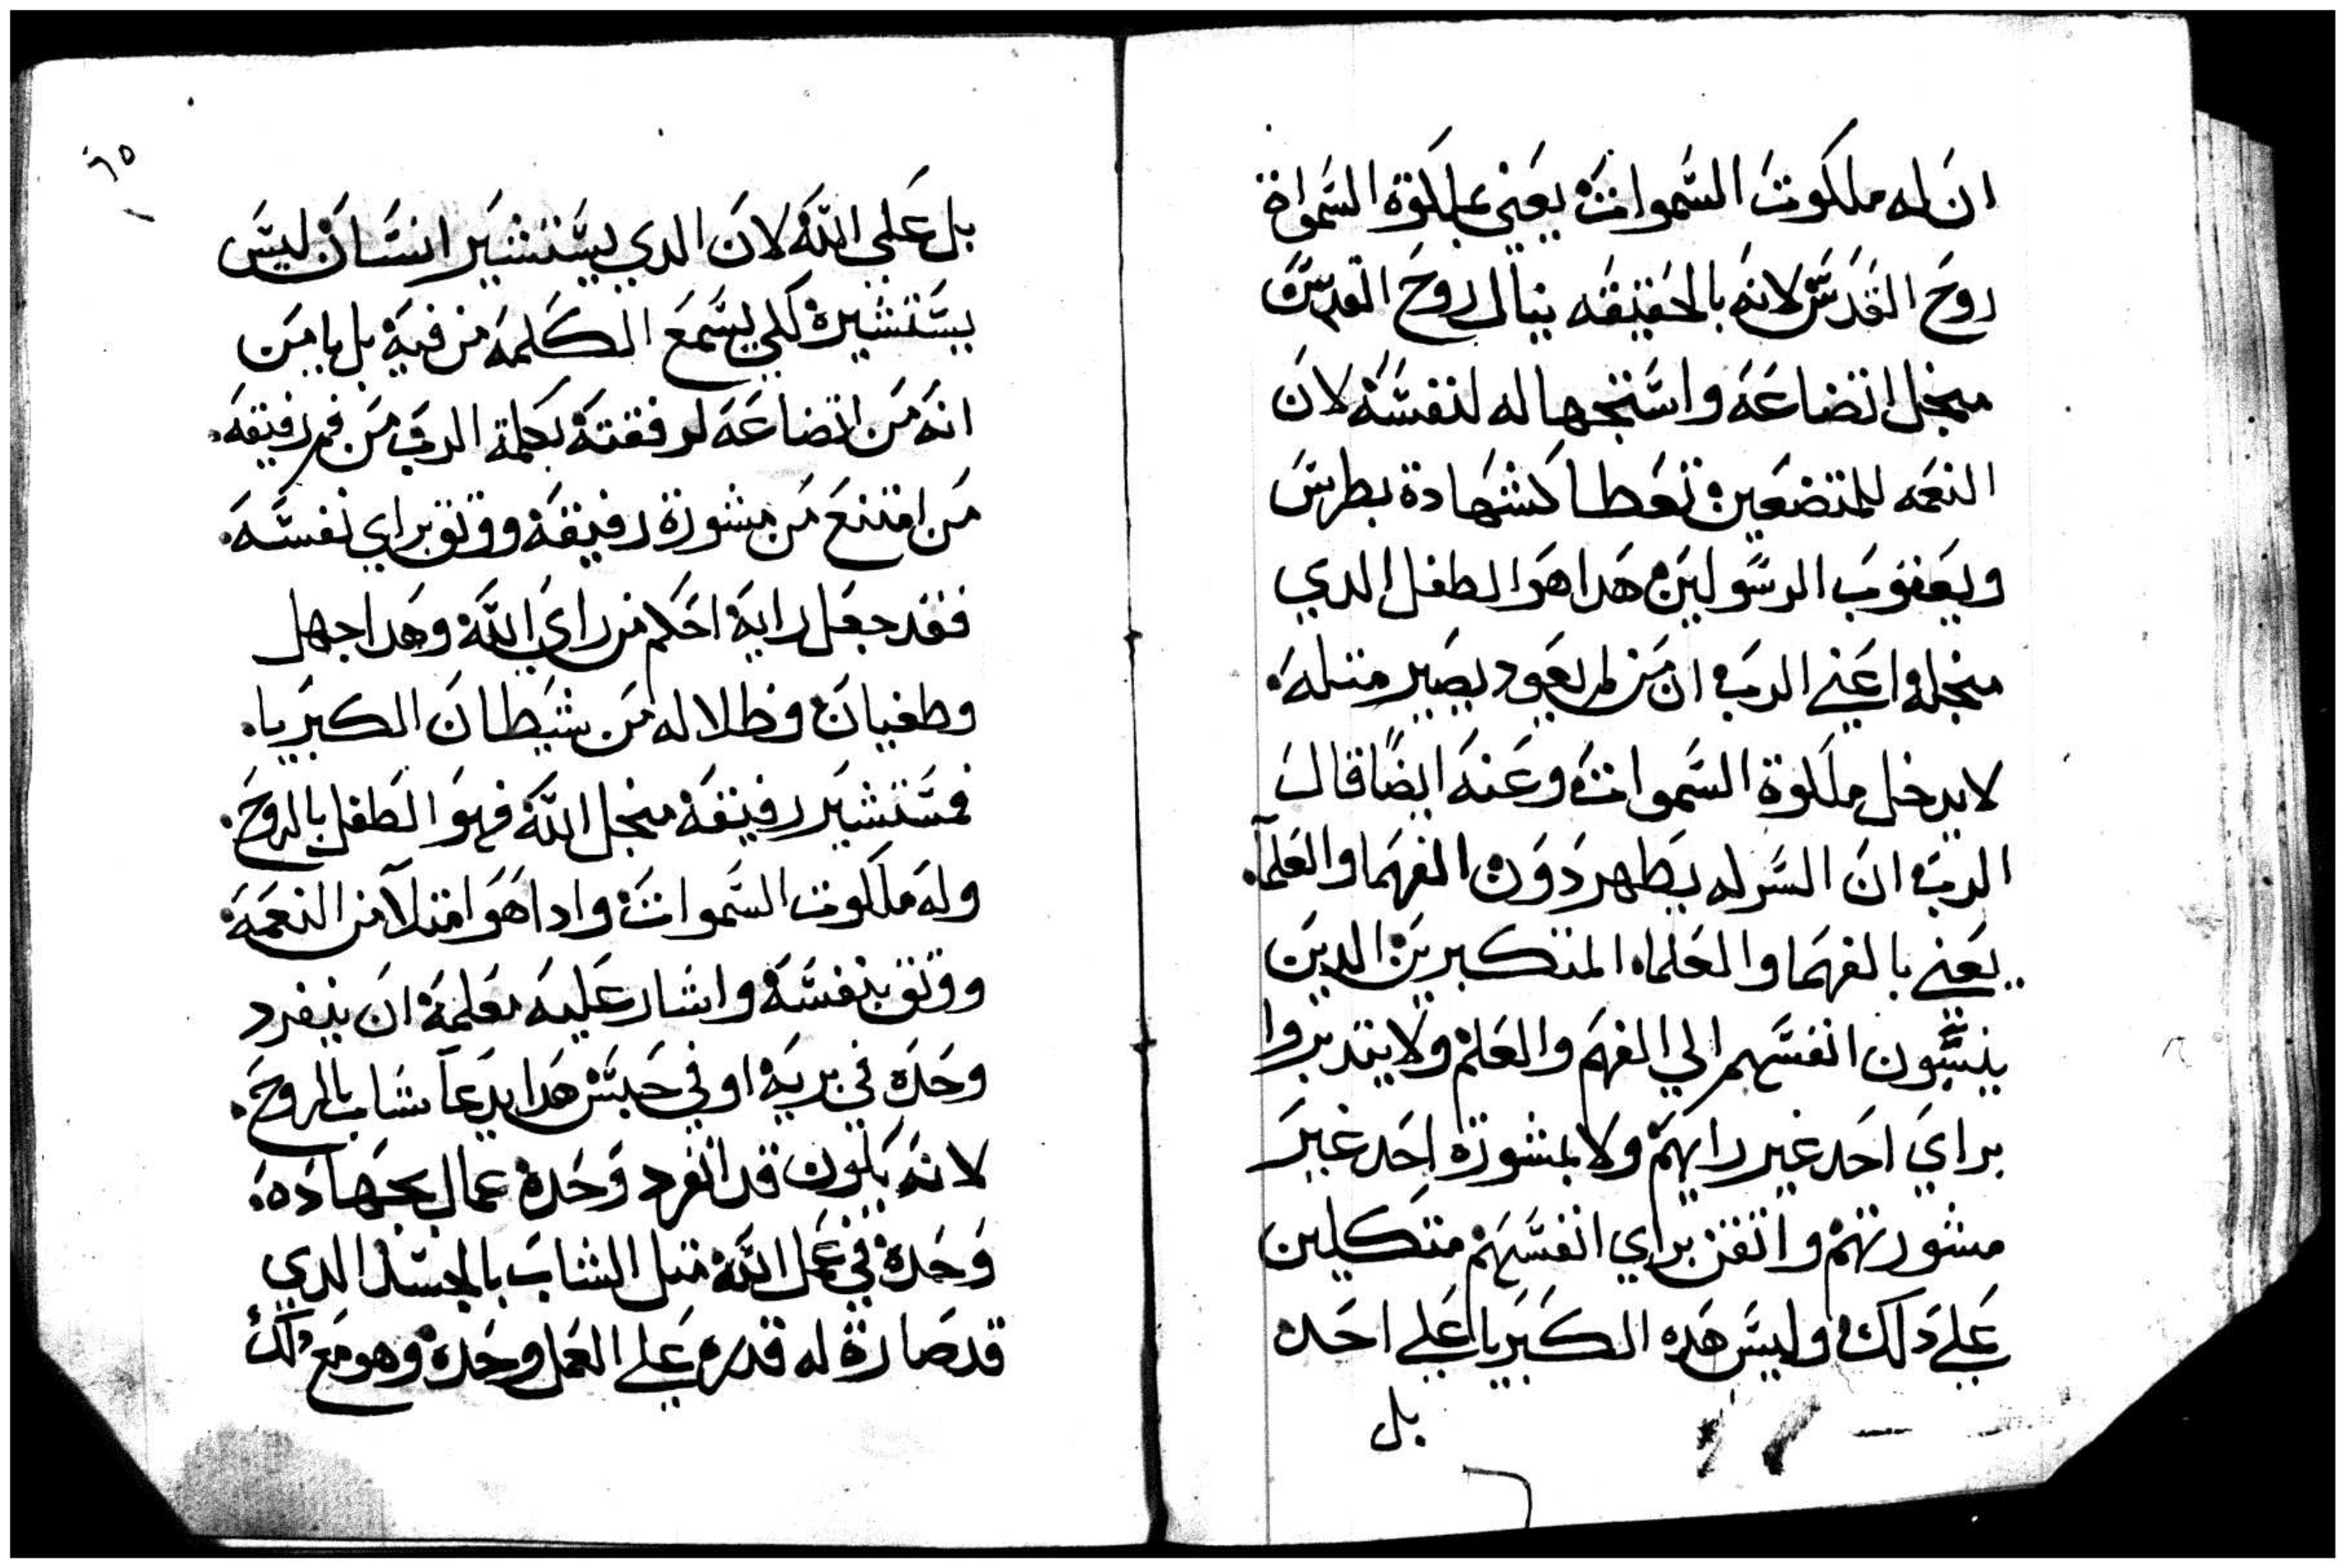 ان له ملكوت السموات يعني بملكوة السمواة
روح القدس لانه بالحقيقه ينال روح القدس
منجل اتضاعه واستجهاله لنفسه لان
النعمه للمتضعين تعطا كشهادة بطرس
ويعقوب الرسولين هدا هو الطفل الدي
منجله اعني الرب ان من لم يعود يصير متله
لا يدخل ملكوة السموات وعنه ايضا قال
الرب ان السر له يظهر دون الفهما والعلمآ
يعني بالفهما والعلماء المتكبرين الدين
ينسبون انفسهم الي الفهم والعلم ولا يتدبروا
براي احد غير رايهم ولا بمشورة احد غير
مشورتهم واتقن براي انفسهم متكلين
علي دلك وليس هده الكبريا علي احده
بل
٦٥
بل علي الله لان الدي يستشير انسان ليس
يستشيره لكي يسمع الكلمه من فيه بل يامن
انه من اتضاعه لرفقته بكلمة الرب من فم رفيقه
من امتنع من مشورة رفيقه ووتق براي نفسه
فقد جعل رايه احكم من راي الله وهدا جهل
وطغيان وظلاله من شيطان الكبريا
فمستشير رفيقه منجل الله فهو الطفل بالروح
وله ملكوت السموات وادا هو امتلآ من النعمه
ووتق بنفسه واشار عليه معلمه ان ينفرد
وحده في بريه او في حبس هدا يدعآ شاب بالروح
لانه يكون قد انفرد وحده عمال بجهاده
وحده في عمل الله متل الشاب بالجسد الدي
قد صارة له قدره علي العمل وحده وهو مع دلك